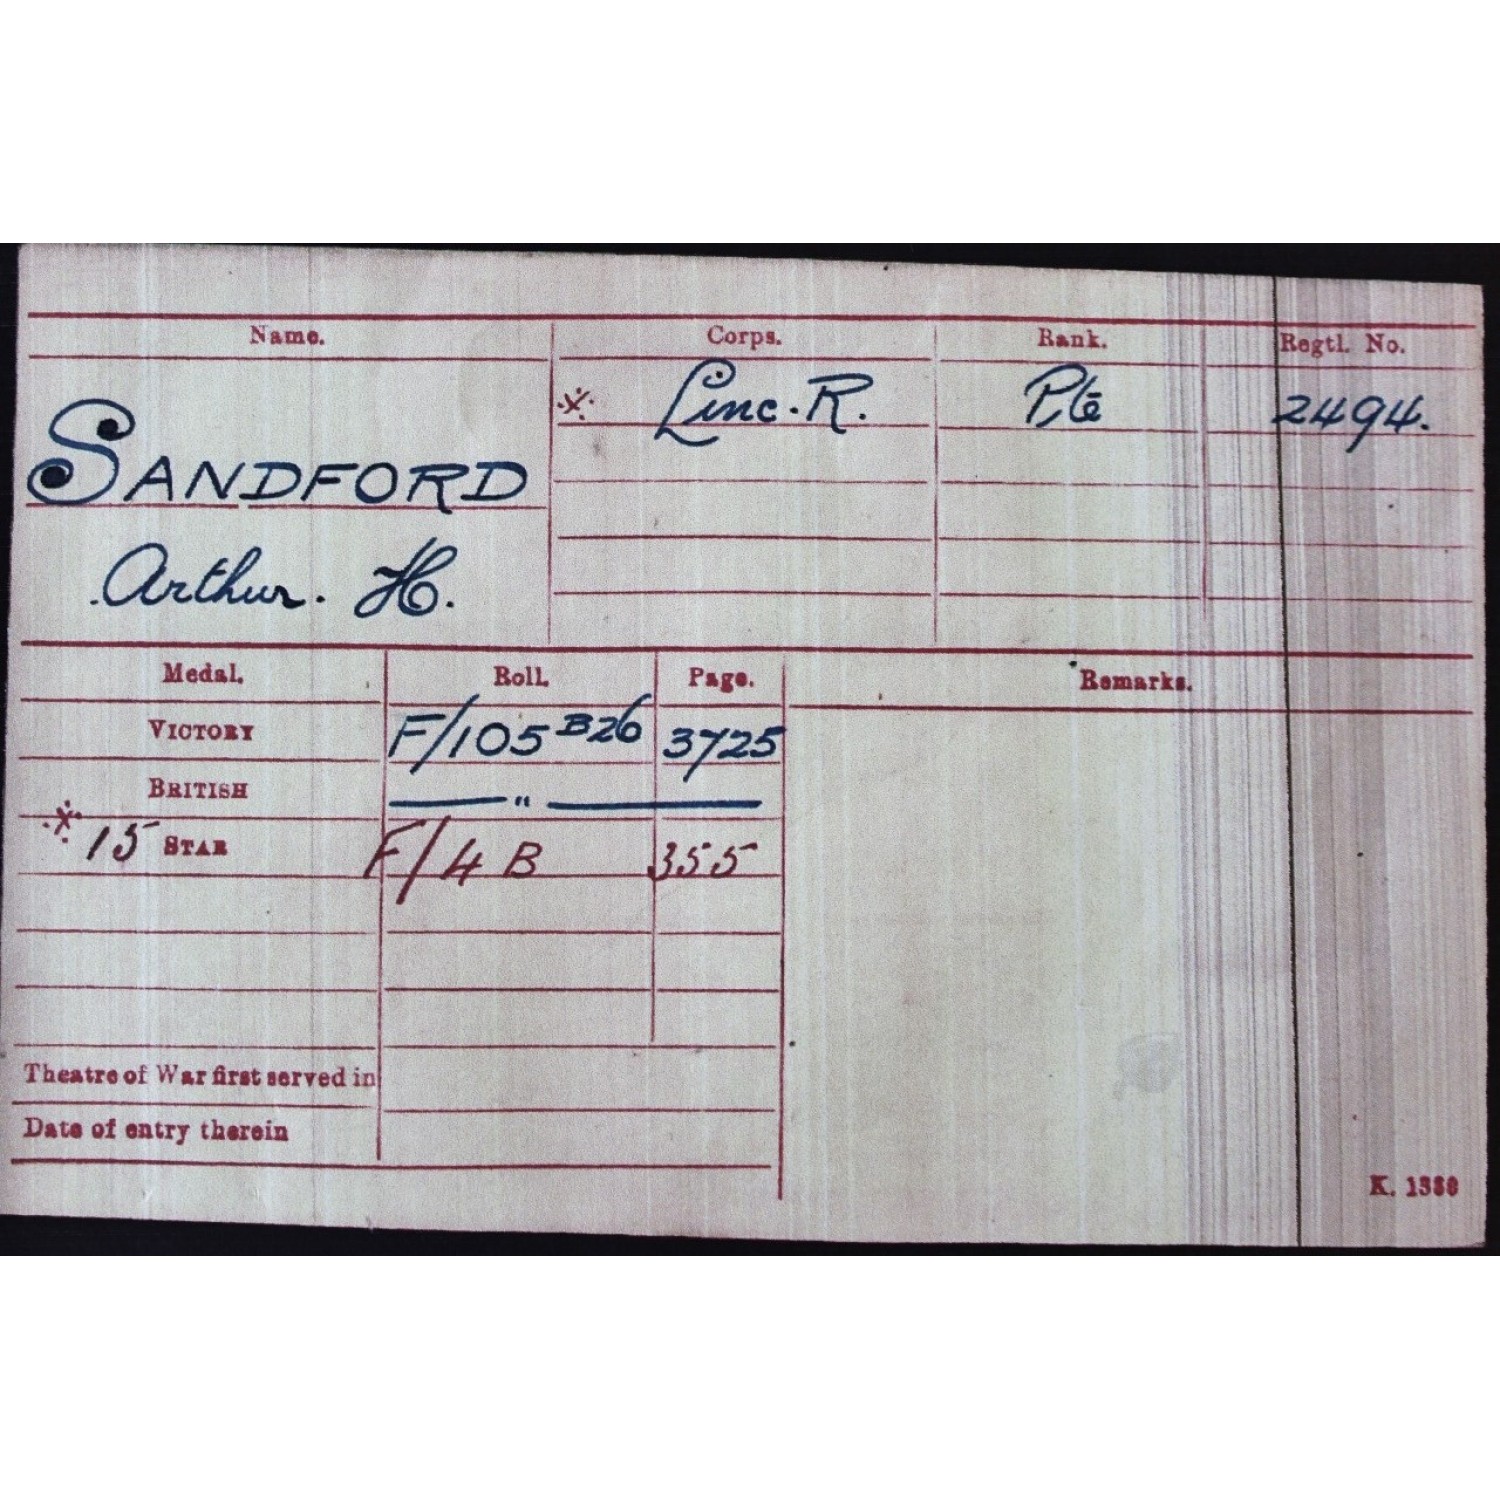 Name. Corps. Rank. Regtl. No.
SANDFORD ※ Linc. R. Pte 2494.
Arthur. H.
Medal. Roll. Page. Remarks.
VICTORY F/105 B26 3725
BRITISH —— " ——
※ 15 STAR F/4 B 355
Theatre of War first served in
Date of entry therein
K. 1380